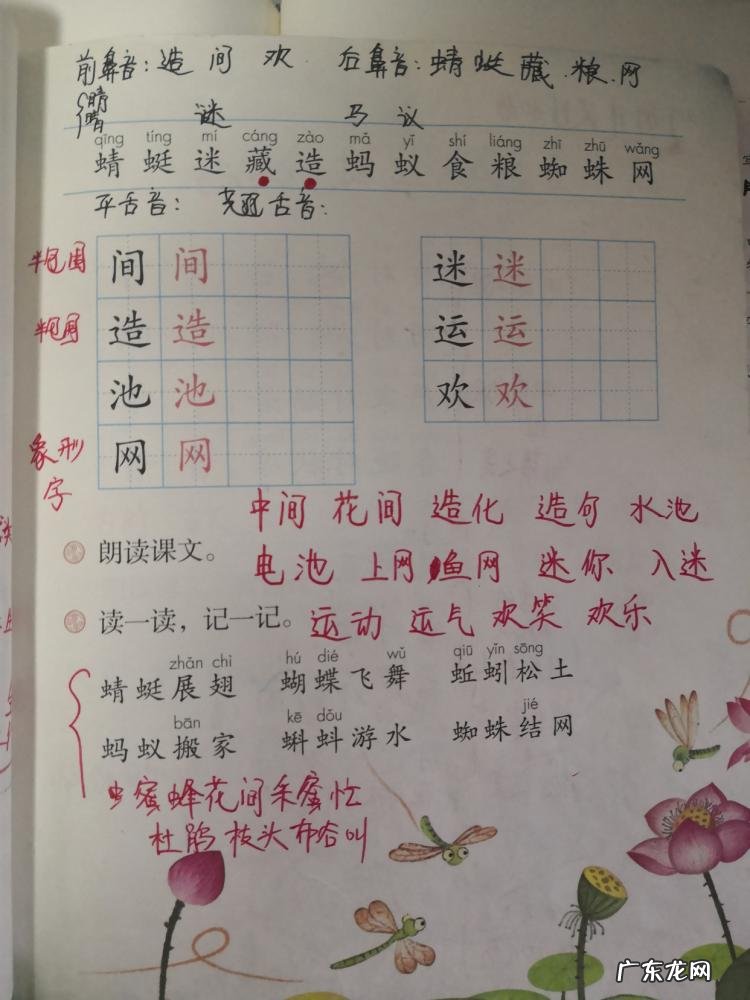 前鼻音：造 间 欢 后鼻音：蜻 蜓 藏 粮 网
晴
睛
谜 马 议
qīng tíng mí cáng zào mǎ yǐ shí liáng zhī zhū wǎng
蜻 蜓 迷 藏 造 蚂 蚁 食 粮 蜘 蛛 网
平舌音： 翘舌音：
半包围 间 间 迷 迷
半包围 造 造 运 运
池 池 欢 欢
象形字 网 网
中间 花间 造化 造句 水池
朗读课文。
电池 上网 鱼网 迷你 入迷
读一读，记一记。 运动 运气 欢笑 欢乐
zhǎn chì hú dié wǔ qiū yǐn sōng
蜻蜓展翅 蝴蝶飞舞 蚯蚓松土
bān kē dǒu jié
蚂蚁搬家 蝌蚪游水 蜘蛛结网
蜜蜂花间采蜜忙
杜鹃枝头布谷叫
广东龙网